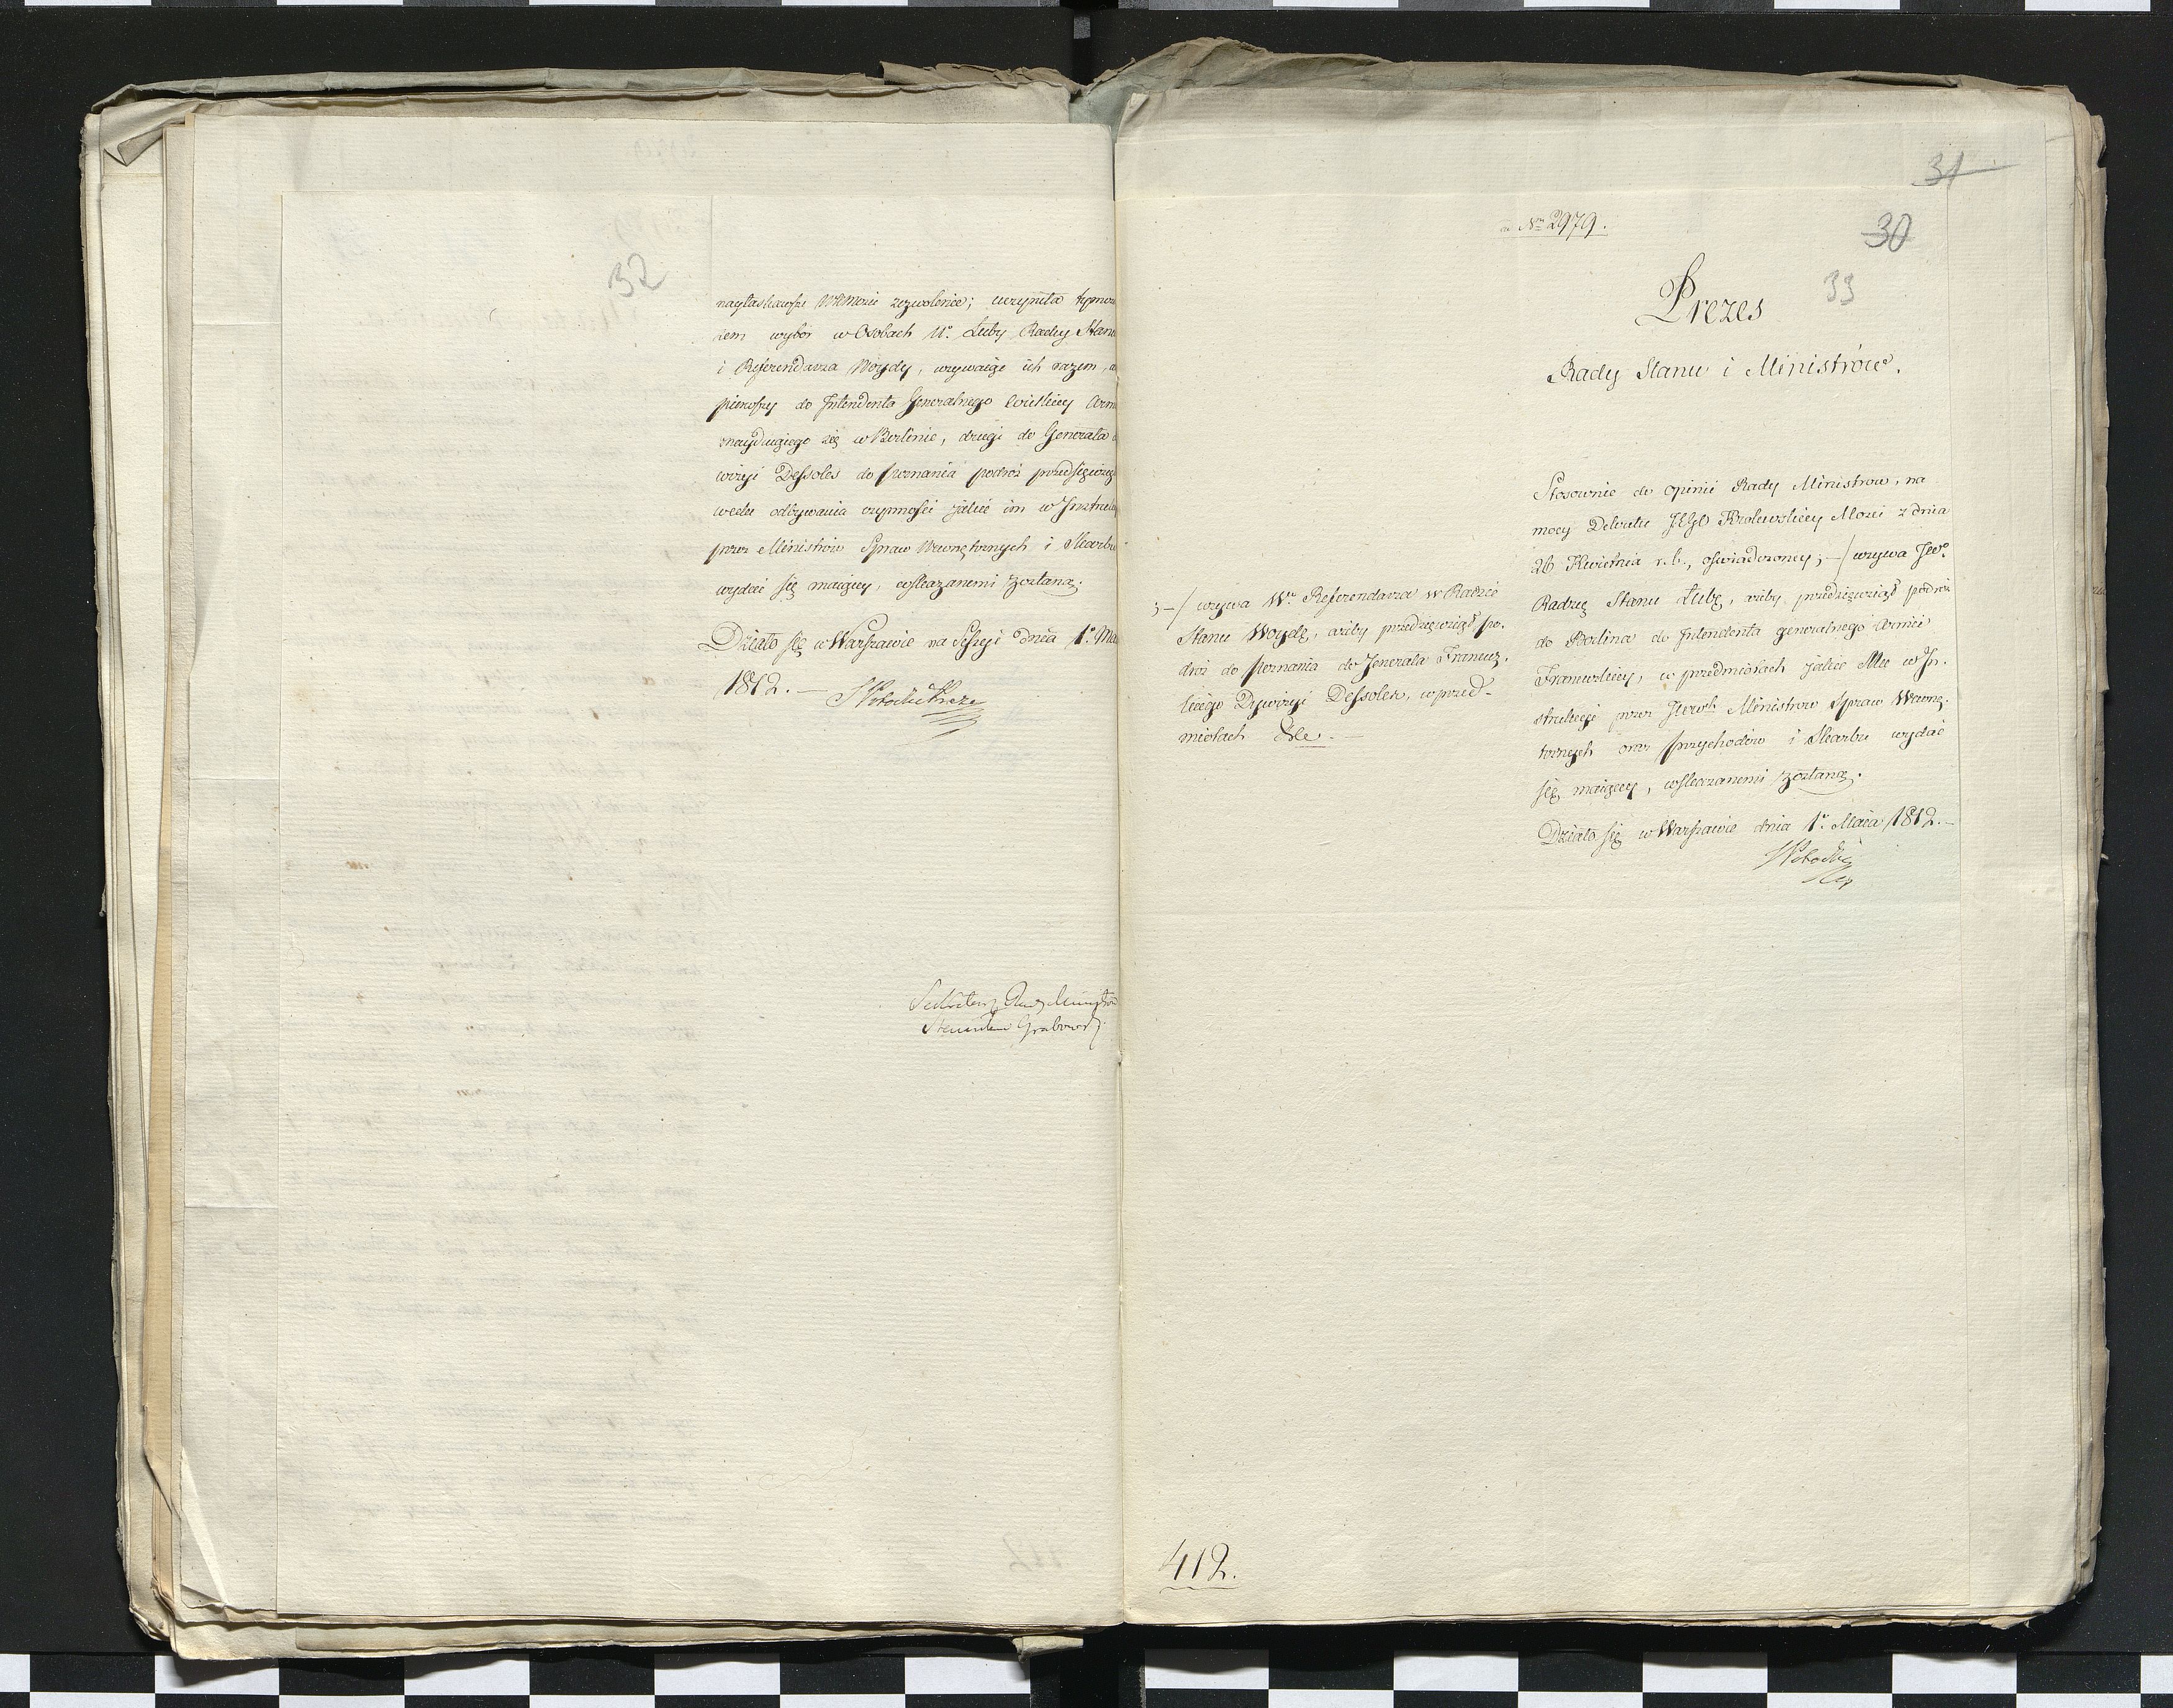 32
nayłaskawsze W Mowie zezwolenie; uczyniła tymcza
sem wybór w Osobach Uo. Łuby Radcy Stanu
i Referendarza Woydy, wzywaiąc ich razem, a
pierwszy do Intendenta Generalnego Wielkiey Arm
znayduiącego się w Berlinie, drugi do Generała
wizyi Dessoles do Poznania podróż przedsięwzięli
wedle odbywania czynności jakie im w Instruk
przez Ministrów Spraw Wewnętrznych i Skarbu
wydać się maiącey, wskazanemi zostaną.
Działo się w Warszawie na Sessyi dnia 1o. Ma
1812. — S Potocki Prezes
Sekretarz Rady Ministrow
Stanisław Grabowski
31
ad Nm 2979.
30
33
Prezes
Rady Stanu i Ministrów.
Stosownie do opinii Rady Ministrow, na
mocy Dekretu JEgo Krolewskiey Mości z dnia
26 Kwietnia r. b., oświadczoney; —/ wzywa JWo.
Radzcę Stanu Łubę, ażeby przedsięwziął podróż
do Berlina do Intendenta generalnego Armii
Francuzkiey, w przedmiotach jakie Mu w In-
strukcyi przez JWWch Ministrow Spraw Wewnę-
trznych oraz Przychodów i Skarbu wydać
się maiącey, wskazanemi zostaną.
Działo się w Warszawie dnia 1o. Maia 1812. —
S Potocki
; —/ wzywa Wo. Referendarza w Radzie
Stanu Woydę, ażeby przedsięwziął po-
dróż do Poznania do Jenerała Francuz-
kiego Dywizyi Dessoles, w przed-
miotach Etc. —
412.